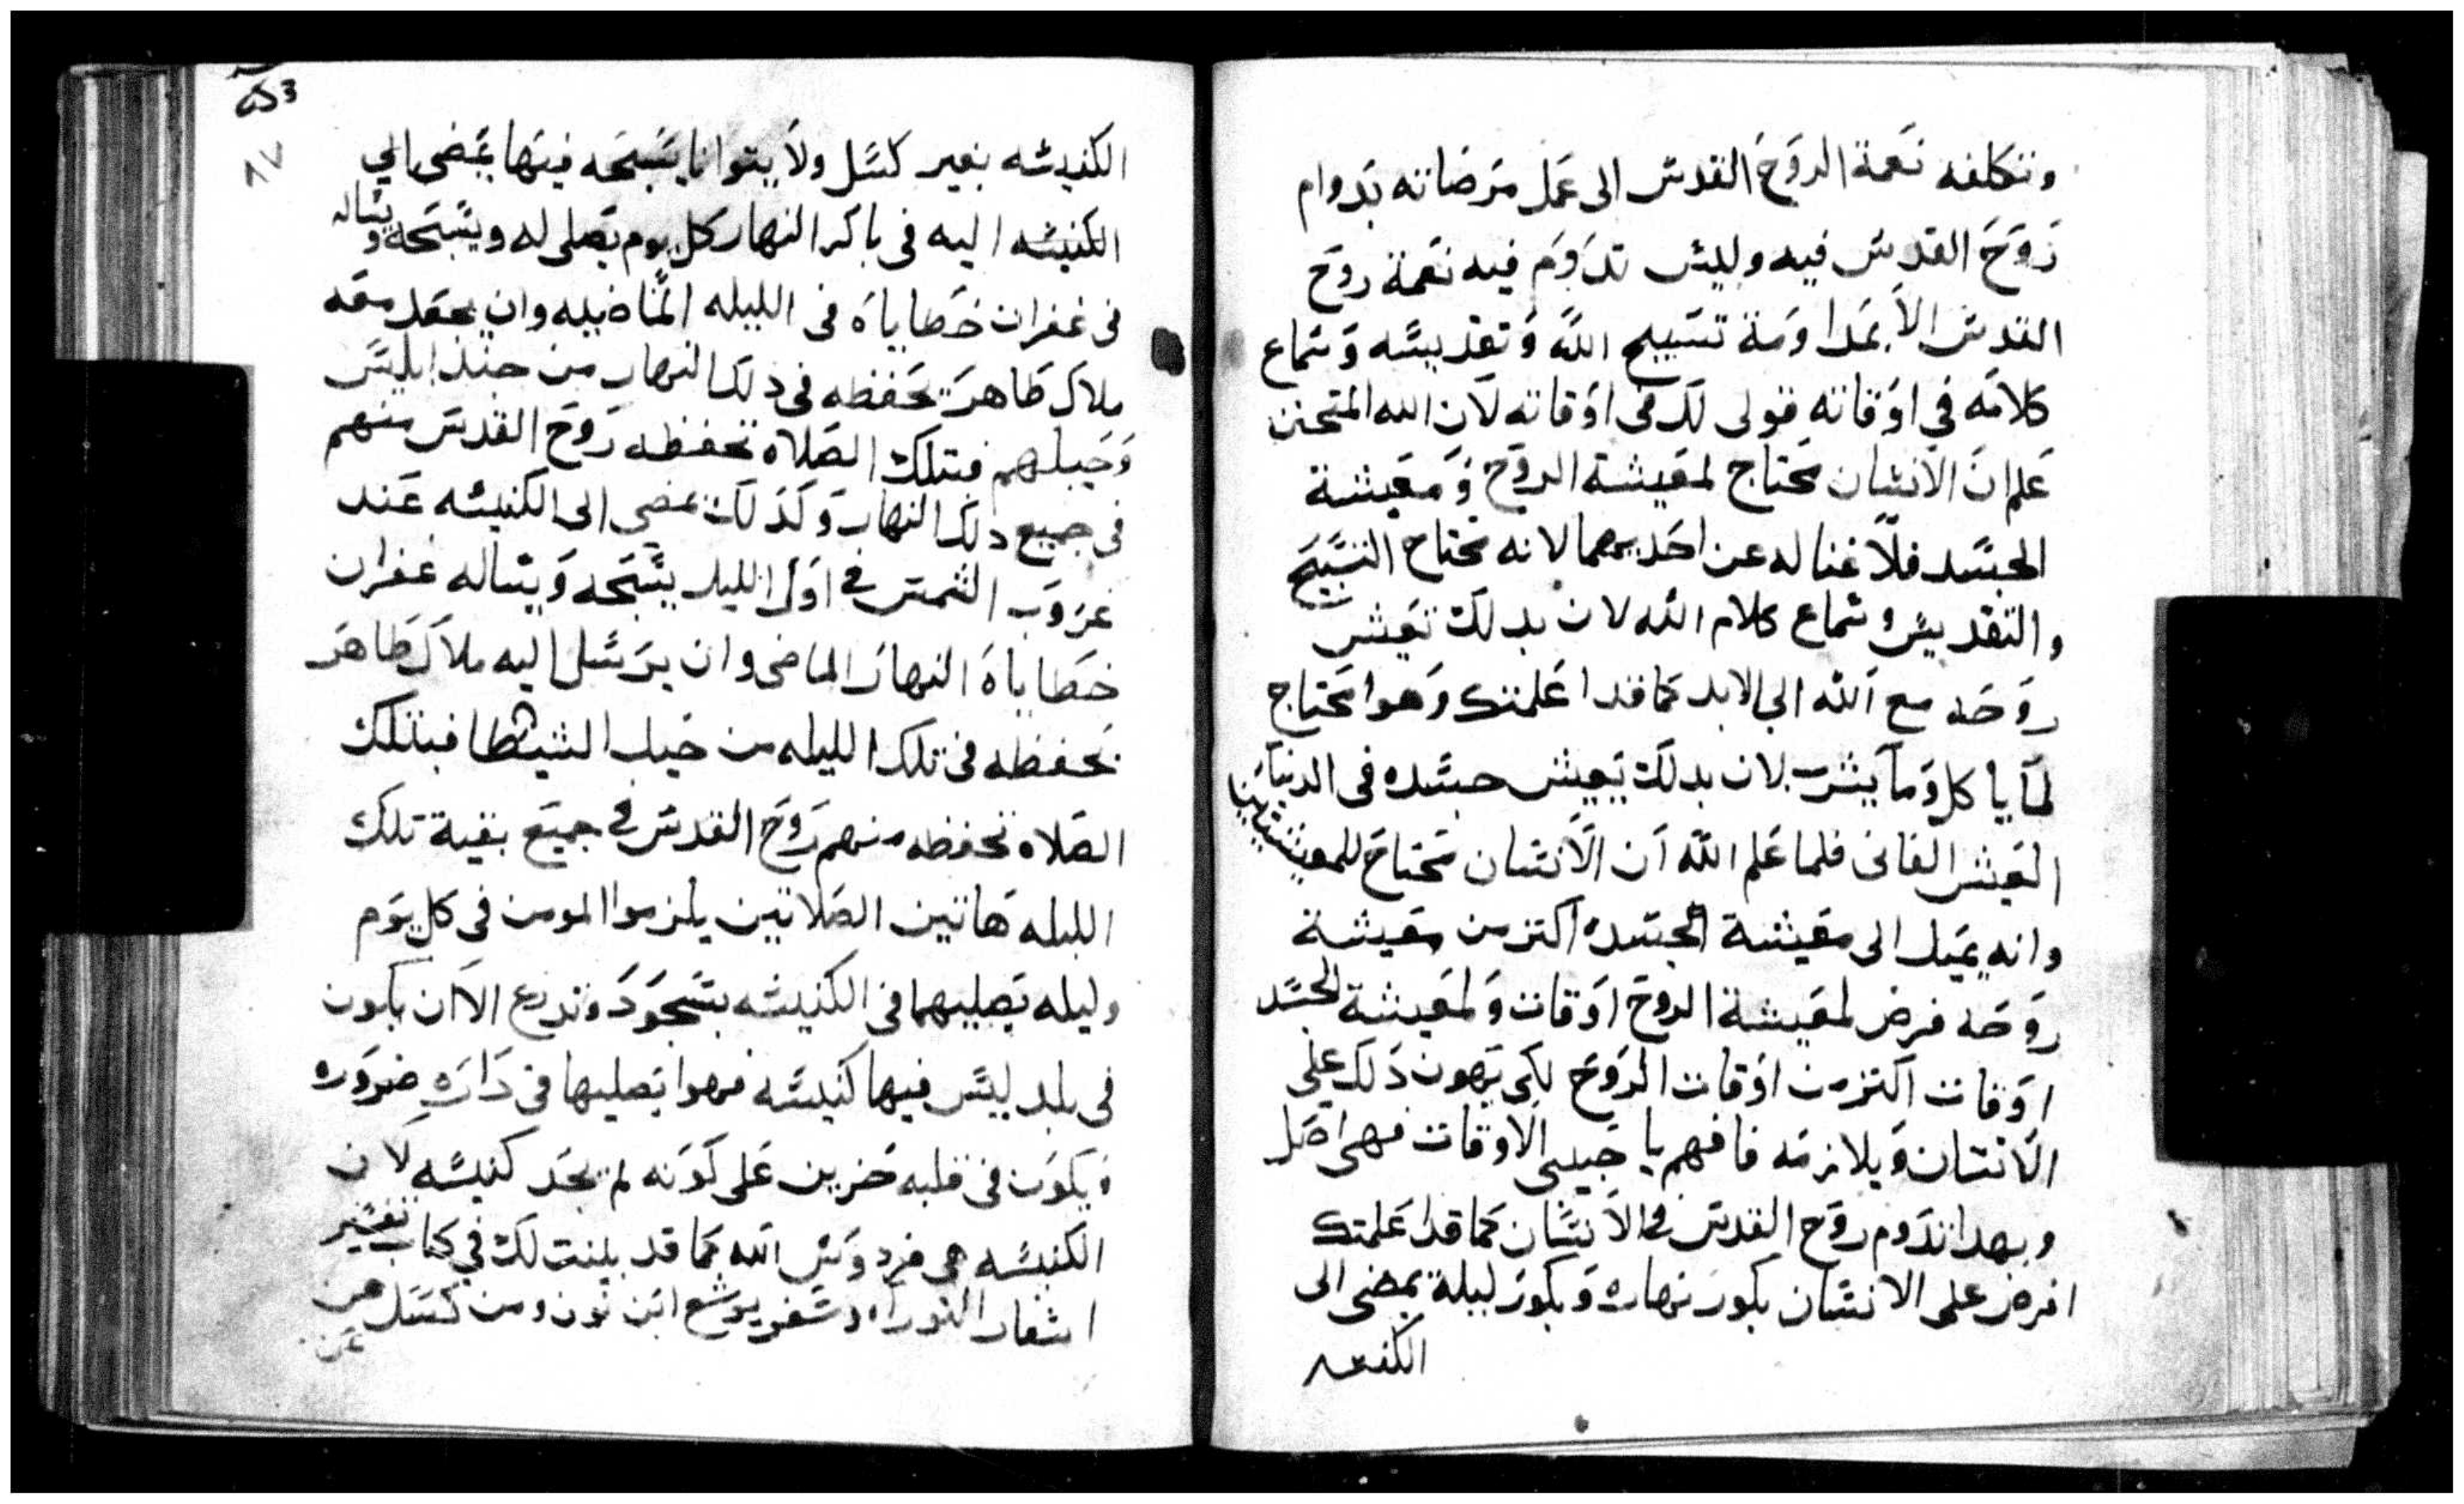 وتتكلفه نعمة الروح القدس الى عمل مرضاته بدوام
روح القدس فيه وليس تدوم فيه نعمة روح
القدس الا بمداومة تسبيح الله وتقديسه وسماع
كلامه في اوقاته قولى لك فى اوقاته لان الله المتحنن
علم ان الانسان محتاج لمعيشة الروح ومعيشة
الجسد فلا غنا له عن احديهما لانه محتاج التسبيح
والتقديس وسماع كلام الله لان بدلك تعيش
روحه مع الله الى الابد كما قد اعلمتك وهوا محتاج
لما ياكل وما يشرب لان بدلك يعيش جسده فى الدنيا
العيش الفانى فلما علم الله ان الانسان محتاج للمعيشتين
وانه يميل الى معيشة الجسد اكتر من معيشة
روحه فرض لمعيشة الروح اوقات ولمعيشة الجسد
اوقات اكتر من اوقات الروح لكى يهون دلك على
الانسان ويلازمه فافهم يا حبيبى الاوقات فهى اصل
وبهدا تدوم روح القدس فى الانسان كما قد اعلمتك
افرض على الانسان بكور نهاره وبكور ليلة يمضى الى
الكنيسه
الكنيسه بغير كسل ولا يتوانا يسبحه فيها يمضى الى
الكنيسه اليه فى باكر النهار كل يوم يصلى له ويسبحه ويساله
فى غفران خطاياه فى الليله الماضيه وان يجعل معه
ملاك طاهر يحفظه فى دلك النهار من جند ابليس
وحيلهم فبتلك الصلاه تحفظه روح القدس منهم
فى جميع دلك النهار وكدلك يمضى الى الكنيسه عند
غروب الشمس فى اول الليل يسبحه ويساله غفران
خطاياه النهار الماضى وان يرسل اليه ملاك طاهر
يحفظه فى تلك الليله من حيل الشيطان فبتلك
الصلاه تحفظه منهم روح القدس فى جميع بقية تلك
الليله هاتين الصلاتين يلزموا المومن فى كل يوم
وليله يصليهما فى الكنيسه بسجود وتدرع الا ان يكون
فى بلد ليس فيها كنيسه فهوا يصليها فى داره ضروره
ويكون فى قلبه حزين على كونه لم يجد كنيسه لان
الكنيسه هى فردوس الله كما قد بينت لك في كتاب تفسير
اسفار التوراه وسفر يوشع ابن نون ومن كسل عن
عن